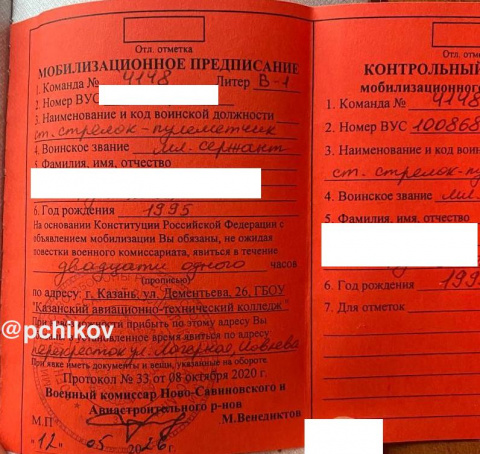 Отл. отметка
МОБИЛИЗАЦИОННОЕ ПРЕДПИСАНИЕ
1. Команда № 4148 Литер В-1
2. Номер ВУС
3. Наименование и код воинской должности
ст. стрелок-пулеметчик
4. Воинское звание мл. сержант
5. Фамилия, имя, отчество
6. Год рождения 1995
На основании Конституции Российской Федерации с
объявлением мобилизации Вы обязаны, не ожидая
повестки военного комиссариата, явиться в течение
двадцати одного часов
(прописью)
по адресу: г. Казань, ул. Дементьева, 26, ГБОУ
"Казанский авиационно-технический колледж"
При невозможности прибыть по этому адресу Вы
в установленное время явиться по адресу
перекресток ул.
При явке иметь документы и вещи, указанные на обороте
Протокол № 33 от 08 октября 2020 г.
Военный комиссар Ново-Савиновского и
Авиастроительного р-нов
М.П М.Венедиктов
"12" 05 г.
@pchikov
Отл. отме
КОНТРОЛЬНЫЙ
мобилизационного
1. Команда № 4148
2. Номер ВУС 100868
3. Наименование и код воин
ст. стрелок-пуле
4. Воинское звание мл.
5. Фамилия, имя, отчество
6. Год рождения 199
7. Для отметок